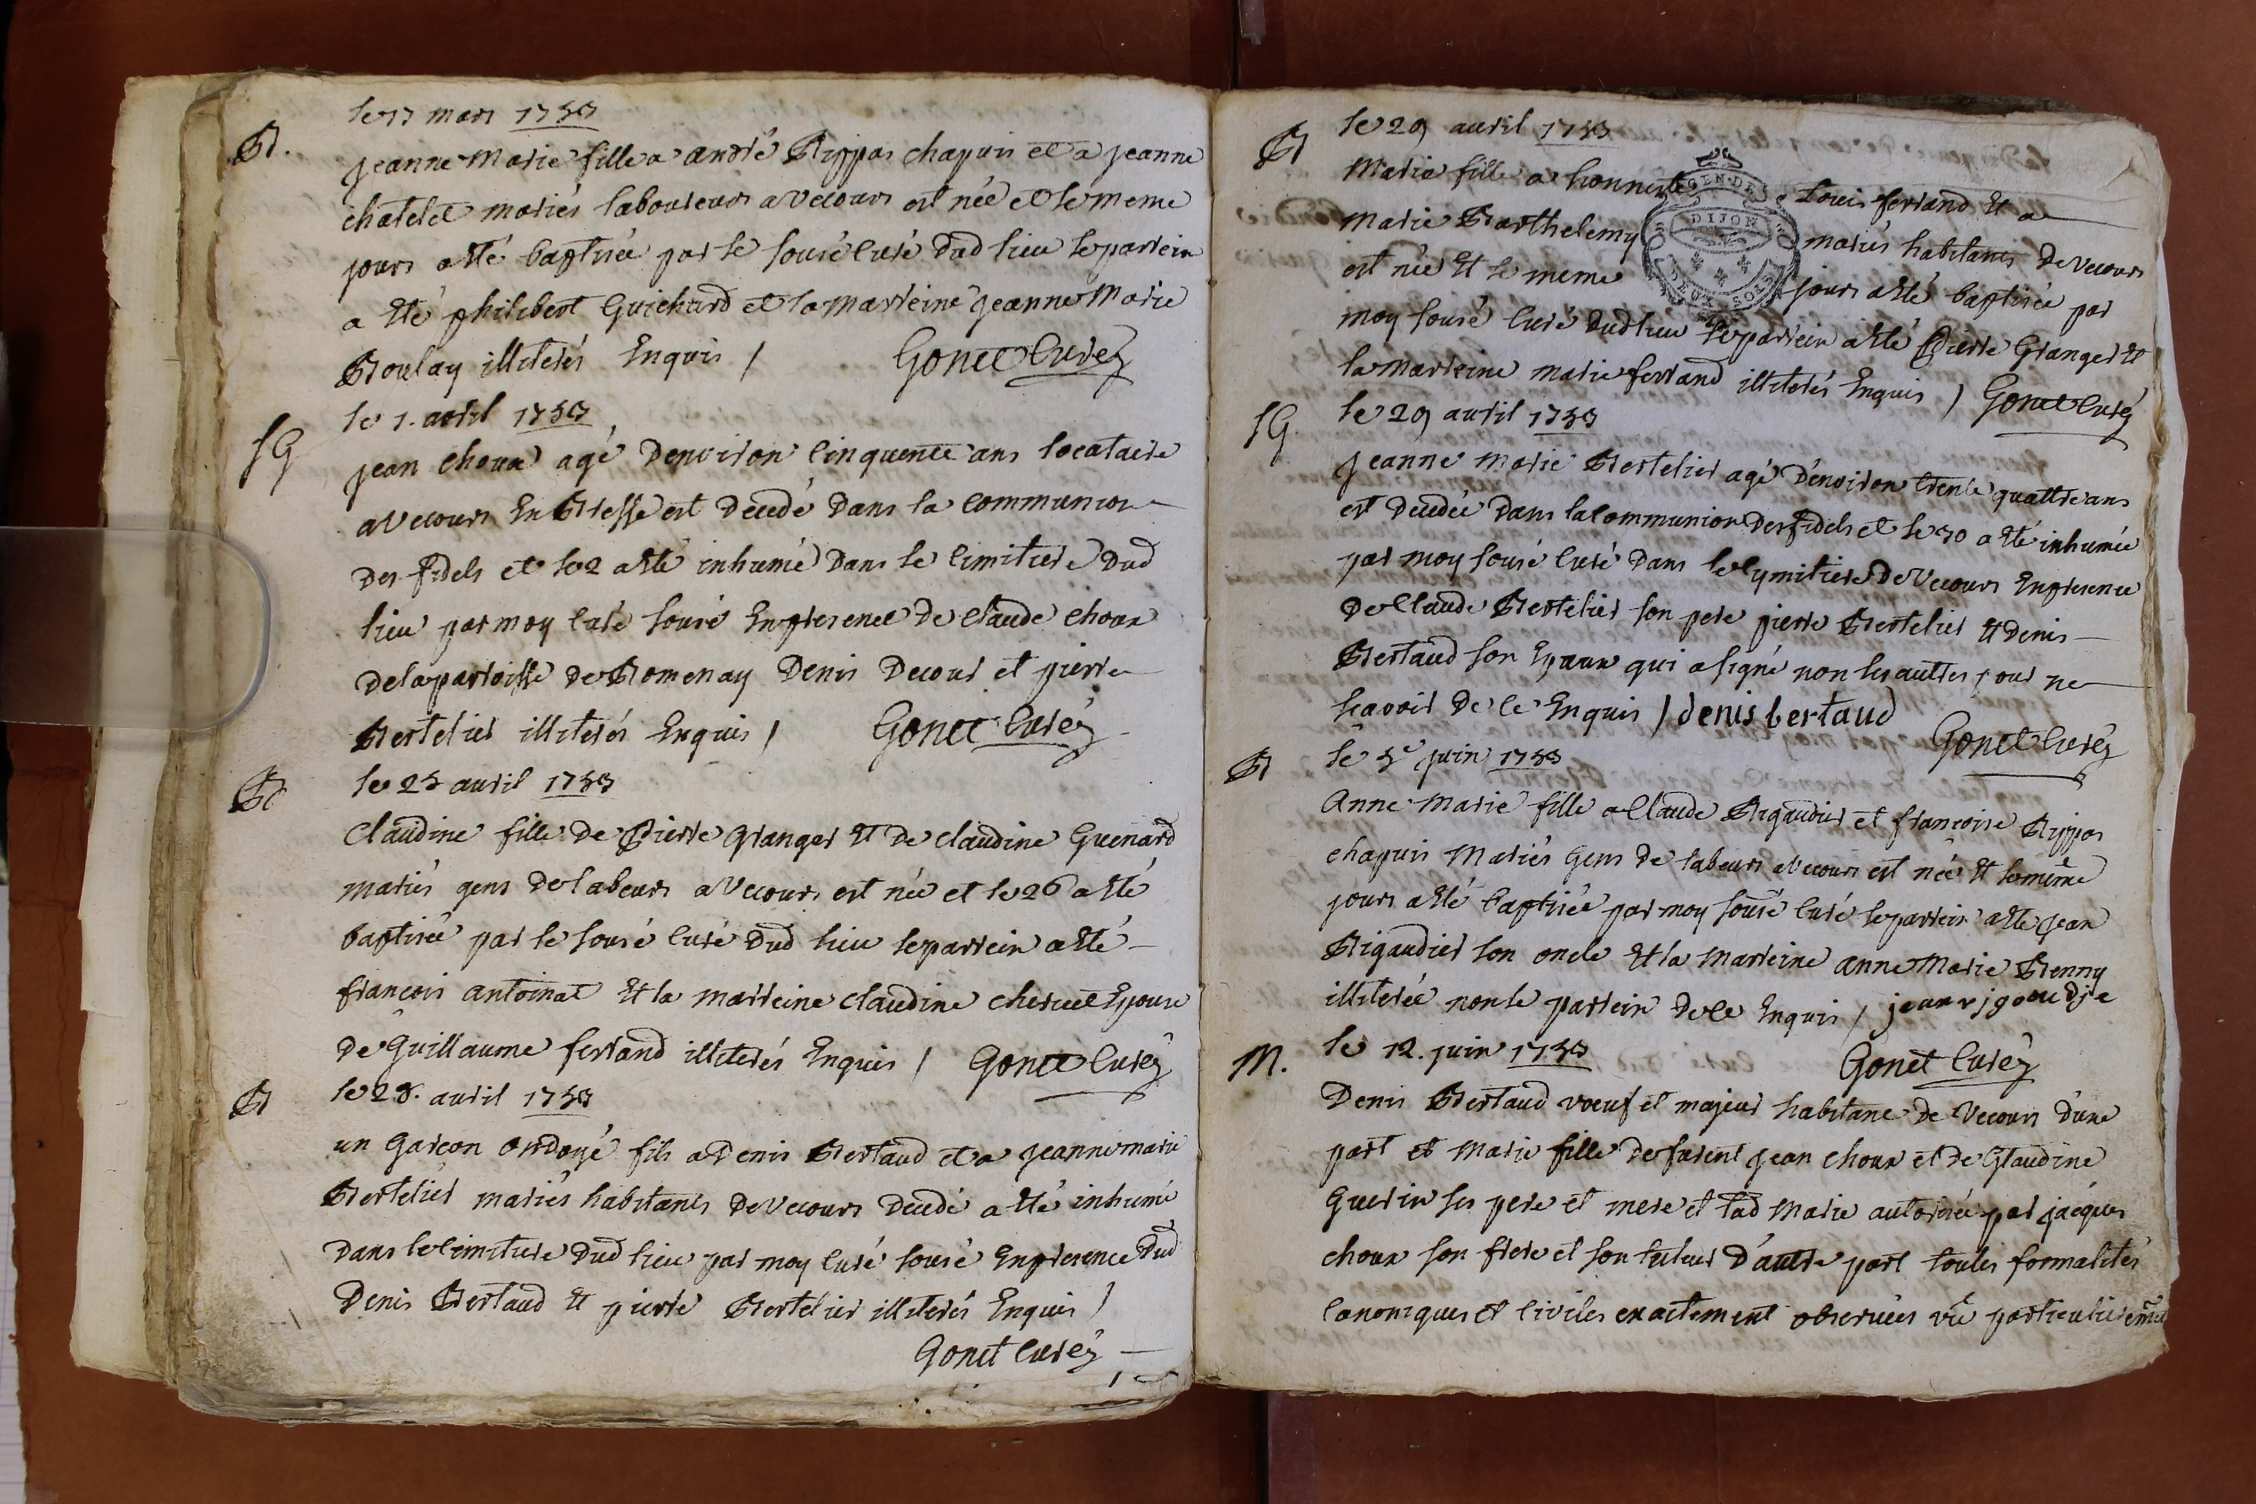 le 17 mars 1753
B.
jeanne Marie fille a andré Rippas chapuis et a jeanne
chatelet mariés laboureurs a Vecours est née et le meme
jours a été baptisée par le sousé curé dud lieu le parrein
a été philibert Guichard et la marreine jeanne Marie
Boulay illiterés Enquis / Gonet Curé
le 1. avril 1753
SG
jean choux agé Denviron Cinquente ans locataire
a Vecours En Bresse est Decedé Dans la communion
Des fidels et le 2 a été inhumé Dans le Cimitiere Dud
lieu par moy Curé sousé En presence De Claude choux
De la parroisse De Romenay Denis Decour et pierre
Bertelier illiterés Enquis / Gonet Curé
B
le 25 avril 1753
Claudine fille De Pierre Granger Et De Claudine Guenard
mariés gens De labeurs a Vecours est née et le 26 a été
baptisée par le sousé curé Dud lieu le parrein a été
francois antoinat Et la marreine Claudine cheruet Epouse
De Guillaume ferrand illiterés Enquis / Gonet Curé
B
le 28. avril 1753
un Garcon ondoyé fils a Denis Bertaud et a jeanne marie
Bertelier mariés habitants De Vecours Decedé a été inhumé
Dans le Cimitiere Dud lieu par moy Curé sousé En presence Dud
Denis Bertaud Et pierre Bertelier illiterés Enquis /
Gonet Curé
le 29 avril 1753
B
Marie fille a honneste Louis ferrand Et a
Marie Barthelemy mariés habitants De Vecours
est née Et le meme jours a été baptisée par
moy sousé Curé Dud lieu le parrein a été Pierre Granger Et
la Marreine marie ferrand illiterés Enquis / Gonet Curé
GEN. DE
DIJON
DEUX SOLS
SG.
le 29 avril 1753
Jeanne Marie Bertelier agé D'environ trente quattre ans
est Decedée Dans la Communion Des fidels et le 30 a été inhumée
par moy sousé Curé Dans le Cymitiere De Vecours En presence
De Claude Bertelier son pere pierre Bertelier Et Denis
Bertaud son Epoux qui a signé non les autres pour ne
scavoir De ce Enquis / denis bertaud
Gonet Curé
B
le 5e juin 1753
Anne Marie fille a Claude Rigaudier et françoise Rippas
chapuis Mariés Gens De labeurs a Vecours est née Et le même
jours a été baptisée par moy sousé Curé le parrein a été Jean
Rigaudier son oncle Et la Marreine anne Marie Renny
illiterée non le parrein De ce Enquis /
M.
le 12. juin 1753 Gonet Curé
Denis Bertaud voeuf et majeur habitant de Vecours D'une
part et Marie fille De furent Jean choux et De Claudine
Guerin ses pere et mere et lad Marie autorisée par jacques
choux son frere et son tuteur D'autre part toutes formalités
Canoniques et Civiles exactement observées vû particulieremt